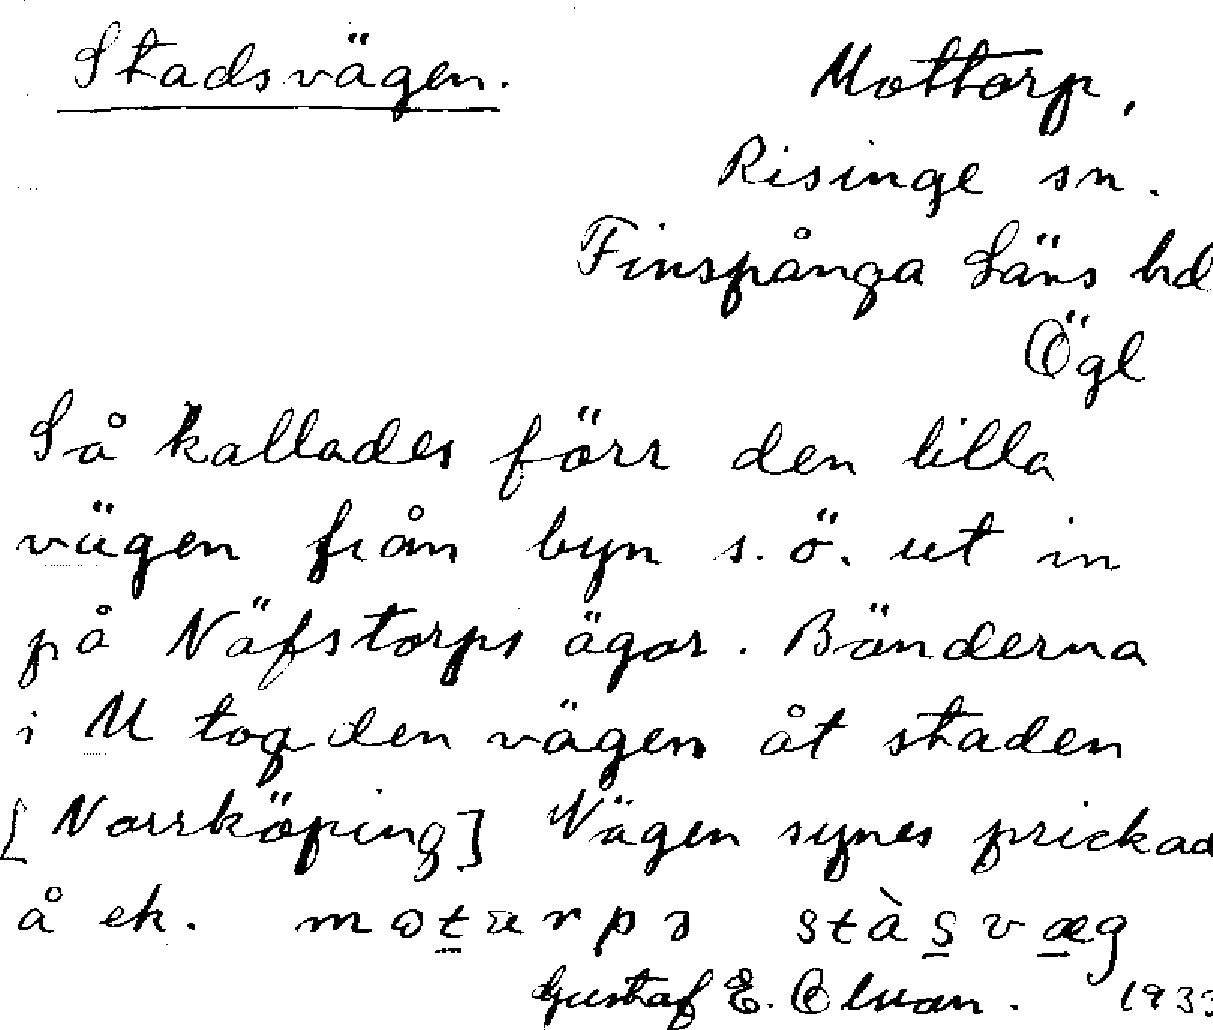 Stadsvägen.
Mottorp,
Risinge sn.
Finspånga Läns hd
Ögl
Så kallades förr den lilla
vägen från byn s.ö. ut in
på Näfstorps ägor. Bönderna
i M tog den vägen åt staden
[Norrköping] Vägen synes prickad
å ek.
Gustaf E. 1933